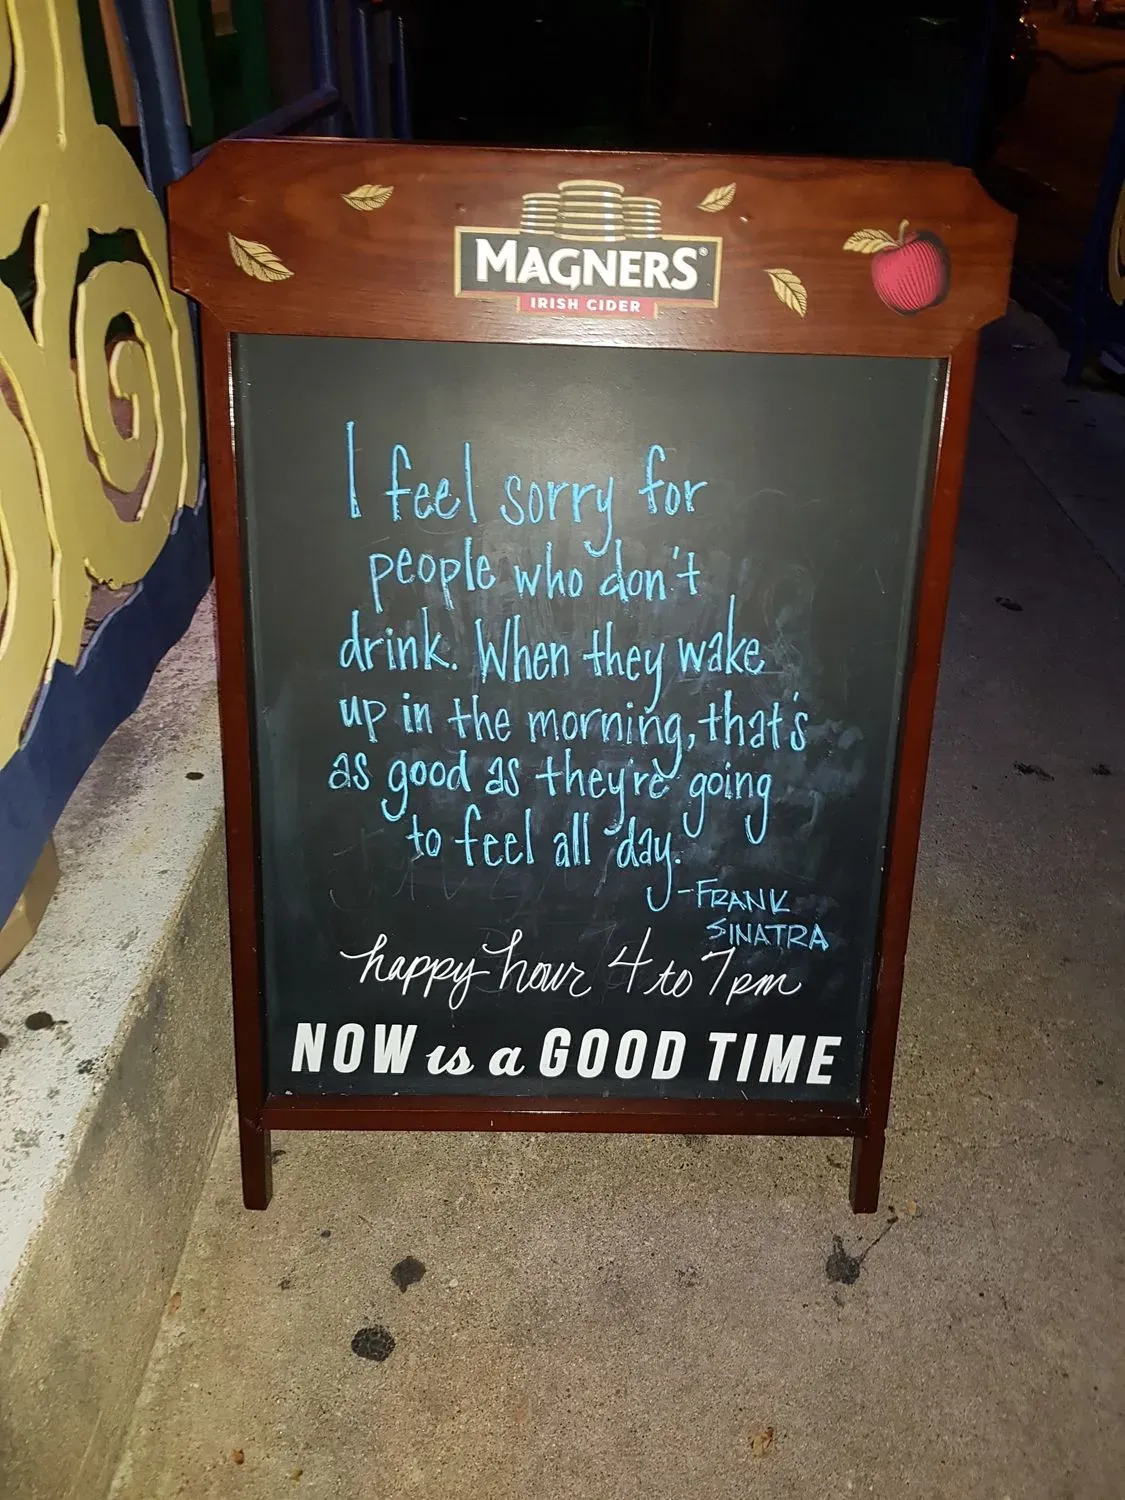 MAGNERS®
IRISH CIDER
I feel sorry for
people who don't
drink. When they wake
up in the morning, that's
as good as they're going
to feel all day.
-FRANK
SINATRA
happy hour 4 to 7pm
NOW is a GOOD TIME